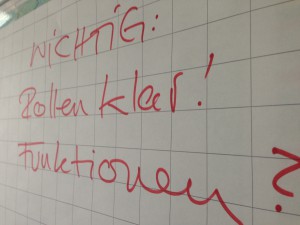 WICHTIG:
Rollen klar!
Funktionen?